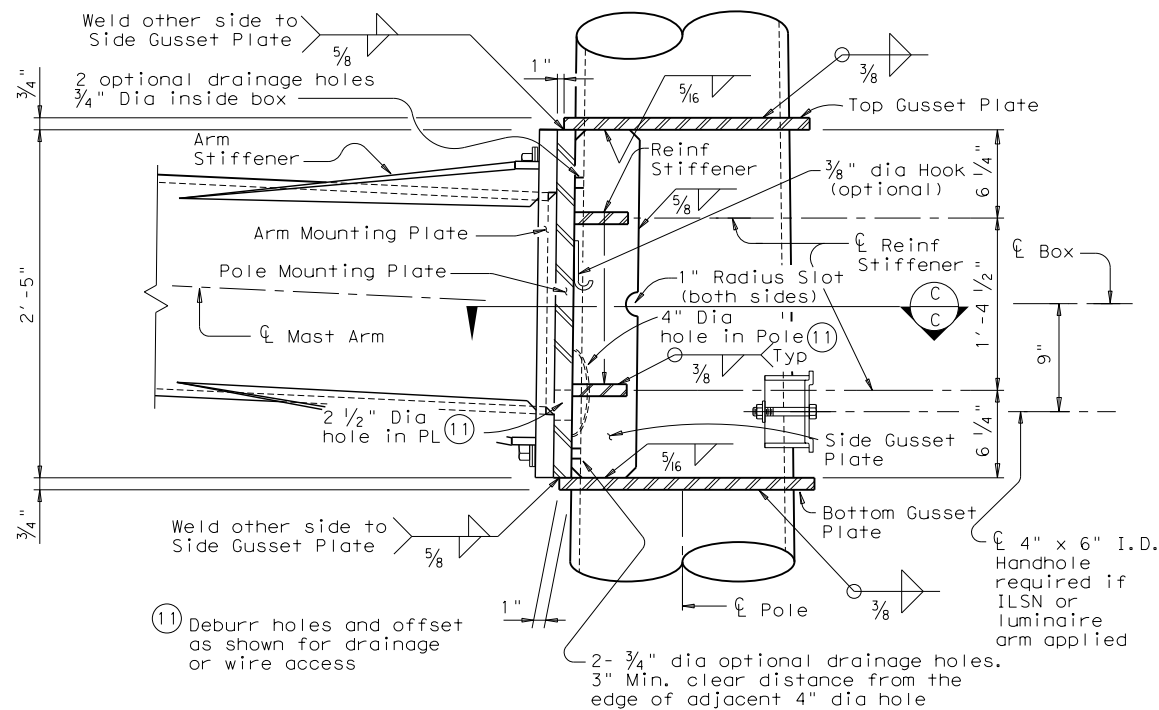 Weld other side to
Side Gusset Plate
5/8
3/4"
2 optional drainage holes
3/4" Dia inside box
1"
5/16
3/8
Top Gusset Plate
Arm
Stiffener
Reinf
Stiffener
3/8" dia Hook
(optional)
6 1/4"
5/8
Arm Mounting Plate
℄ Reinf
Stiffener
℄ Box
Pole Mounting Plate
1" Radius Slot
(both sides)
C
C
2'-5"
4" Dia
hole in Pole 11
1'-4 1/2"
℄ Mast Arm
3/8
Typ
9"
2 1/2" Dia
hole in PL 11
Side Gusset
Plate
6 1/4"
5/16
3/4"
Weld other side to
Side Gusset Plate
5/8
Bottom Gusset
Plate
℄ 4" x 6" I.D.
Handhole
required if
ILSN or
luminaire
arm applied
1"
℄ Pole
3/8
11 Deburr holes and offset
as shown for drainage
or wire access
2- 3/4" dia optional drainage holes.
3" Min. clear distance from the
edge of adjacent 4" dia hole